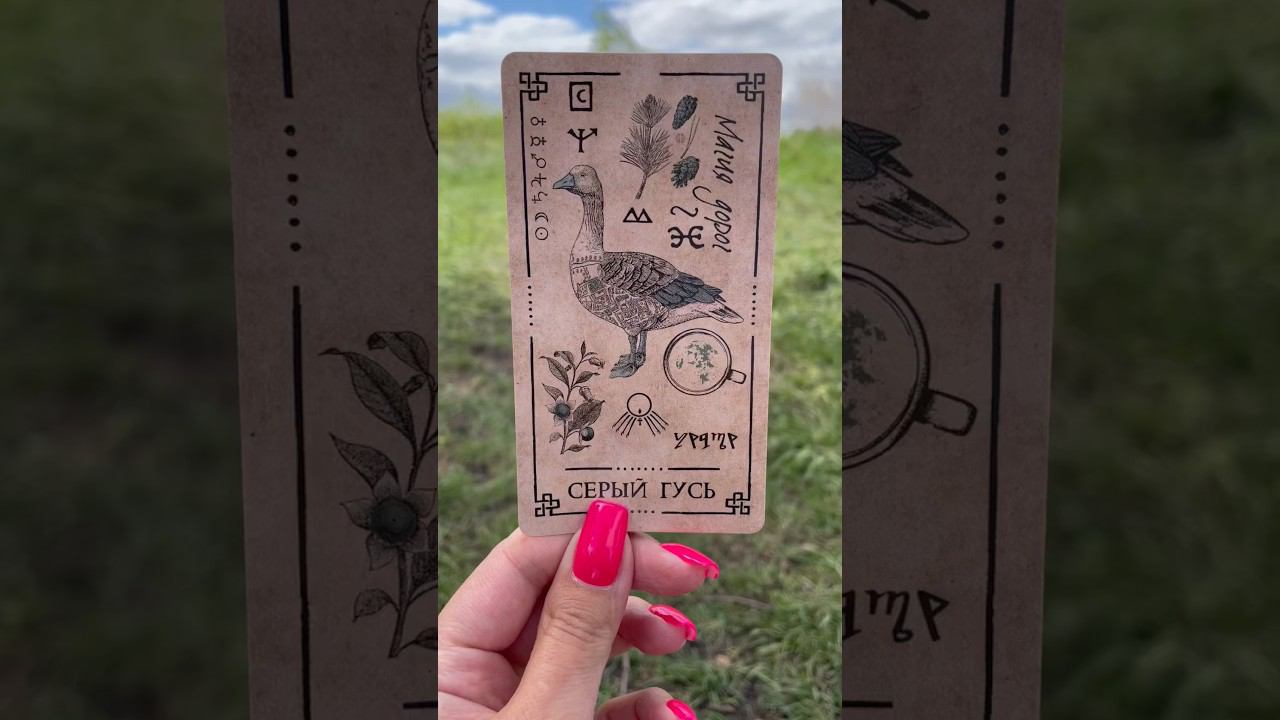 С
Магия дорог
СЕРЫЙ ГУСЬ